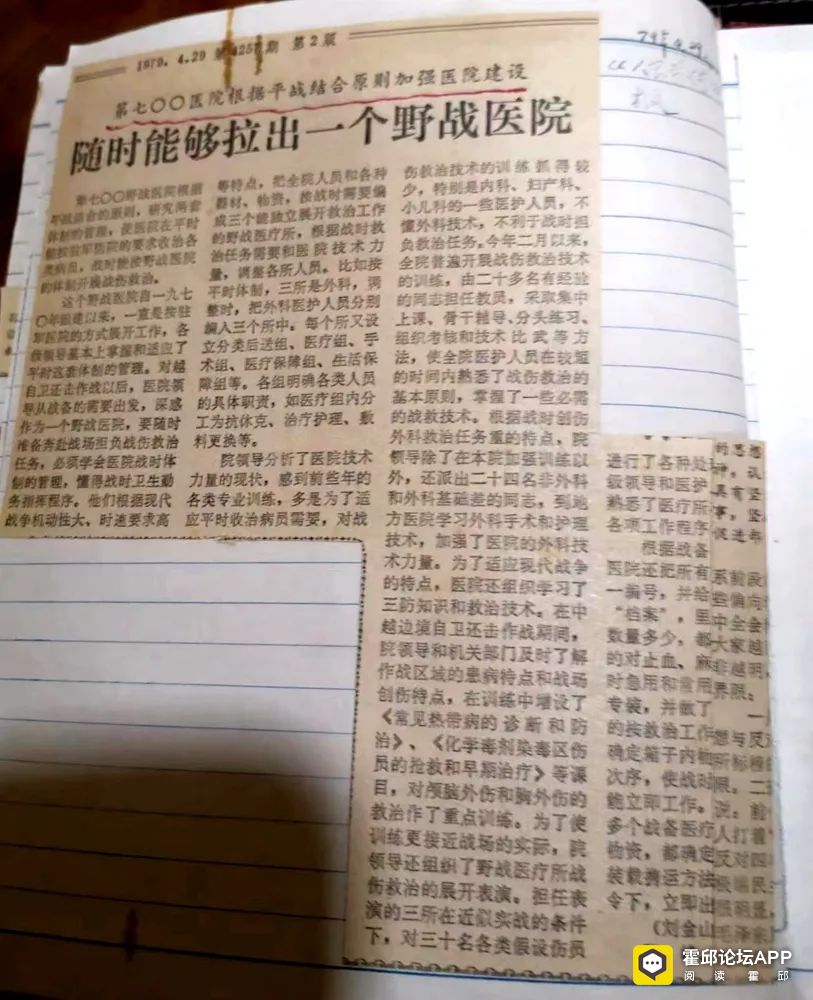 1979. 4.29 第4257期 第2版
第七〇〇医院根据平战结合原则加强医院建设
随时能够拉出一个野战医院
第七〇〇野战医院根据
平战结合的原则，研究两套
体制的管理，使医院在平时
能按驻军医院的要求收治各
类病员，战时能按野战医院
的体制开展战伤救治。
这个野战医院自一九七
〇年组建以来，一直是按驻
军医院的方式展开工作，各
级领导基本上掌握和适应了
平时这套体制的管理。对越
自卫还击作战以后，医院领
导从战备的需要出发，深感
作为一个野战医院，要随时
准备奔赴战场担负战伤救治
任务，必须学会医院战时体
制的管理，懂得战时卫生勤
务指挥程序。他们根据现代
战争机动性大、时速要求高
等特点，把全院人员和各种
器材、物资，按战时需要编
成三个能独立展开救治工作
的野战医疗所，根据战时救
治任务需要和医院技术力
量，调整各所人员。比如按
平时体制，三所是外科，调
整时，把外科医护人员分别
编入三个所中。每个所又设
立分类后送组、医疗组、手
术组、医疗保障组、生活保
障组等。各组明确各类人员
的具体职责，如医疗组内分
工为抗休克、治疗护理、敷
料更换等。
院领导分析了医院技术
力量的现状，感到前些年的
各类专业训练，多是为了适
应平时收治病员需要，对战
伤救治技术的训练抓得较
少，特别是内科、妇产科、
小儿科的一些医护人员，不
懂外科技术，不利于战时担
负救治任务。今年二月以来，
全院普遍开展战伤救治技术
的训练，由二十多名有经验
的同志担任教员，采取集中
上课、骨干辅导、分头练习、
组织考核和技术比武等方
法，使全院医护人员在较短
的时间内熟悉了战伤救治的
基本原则，掌握了一些必需
的战救技术。根据战时创伤
外科救治任务重的特点，院
领导除了在本院加强训练以
外，还派出二十四名非外科
和外科基础差的同志，到地
方医院学习外科手术和护理
技术，加强了医院的外科技
术力量。为了适应现代战争
的特点，医院还组织学习了
三防知识和救治技术。在中
越边境自卫还击作战期间，
院领导和机关部门及时了解
作战区域的患病特点和战场
创伤特点，在训练中增设了
《常见热带病的诊断和防
治》、《化学毒剂染毒区伤
员的抢救和早期治疗》等课
目，对颅脑外伤和胸外伤的
救治作了重点训练。为了使
训练更接近战场的实际，院
领导还组织了野战医疗所战
伤救治的展开表演。担任表
演的三所在近似实战的条件
下，对三十名各类假设伤员
进行了各种处
级领导和医护
熟悉了医疗所
各项工作程序
根据战备
医院还把所有
一编号，并给
“档案”，里
数量多少，都
的对止血、麻
时急用和常用
专装，并做了
的按救治工作
确定箱子内物
次序，使战时
能立即工作。
多个战备医疗
物资，都确定
装载携运方法
令下，立即出
（刘金山
的思想
具有坚
事，坚
促进部
系前段
些偏向
中全会
大家越
非越明
界限：
一
想与反
所标榜
限。二
说：前
人打着
反对四
霍邱论坛APP
阅读霍邱